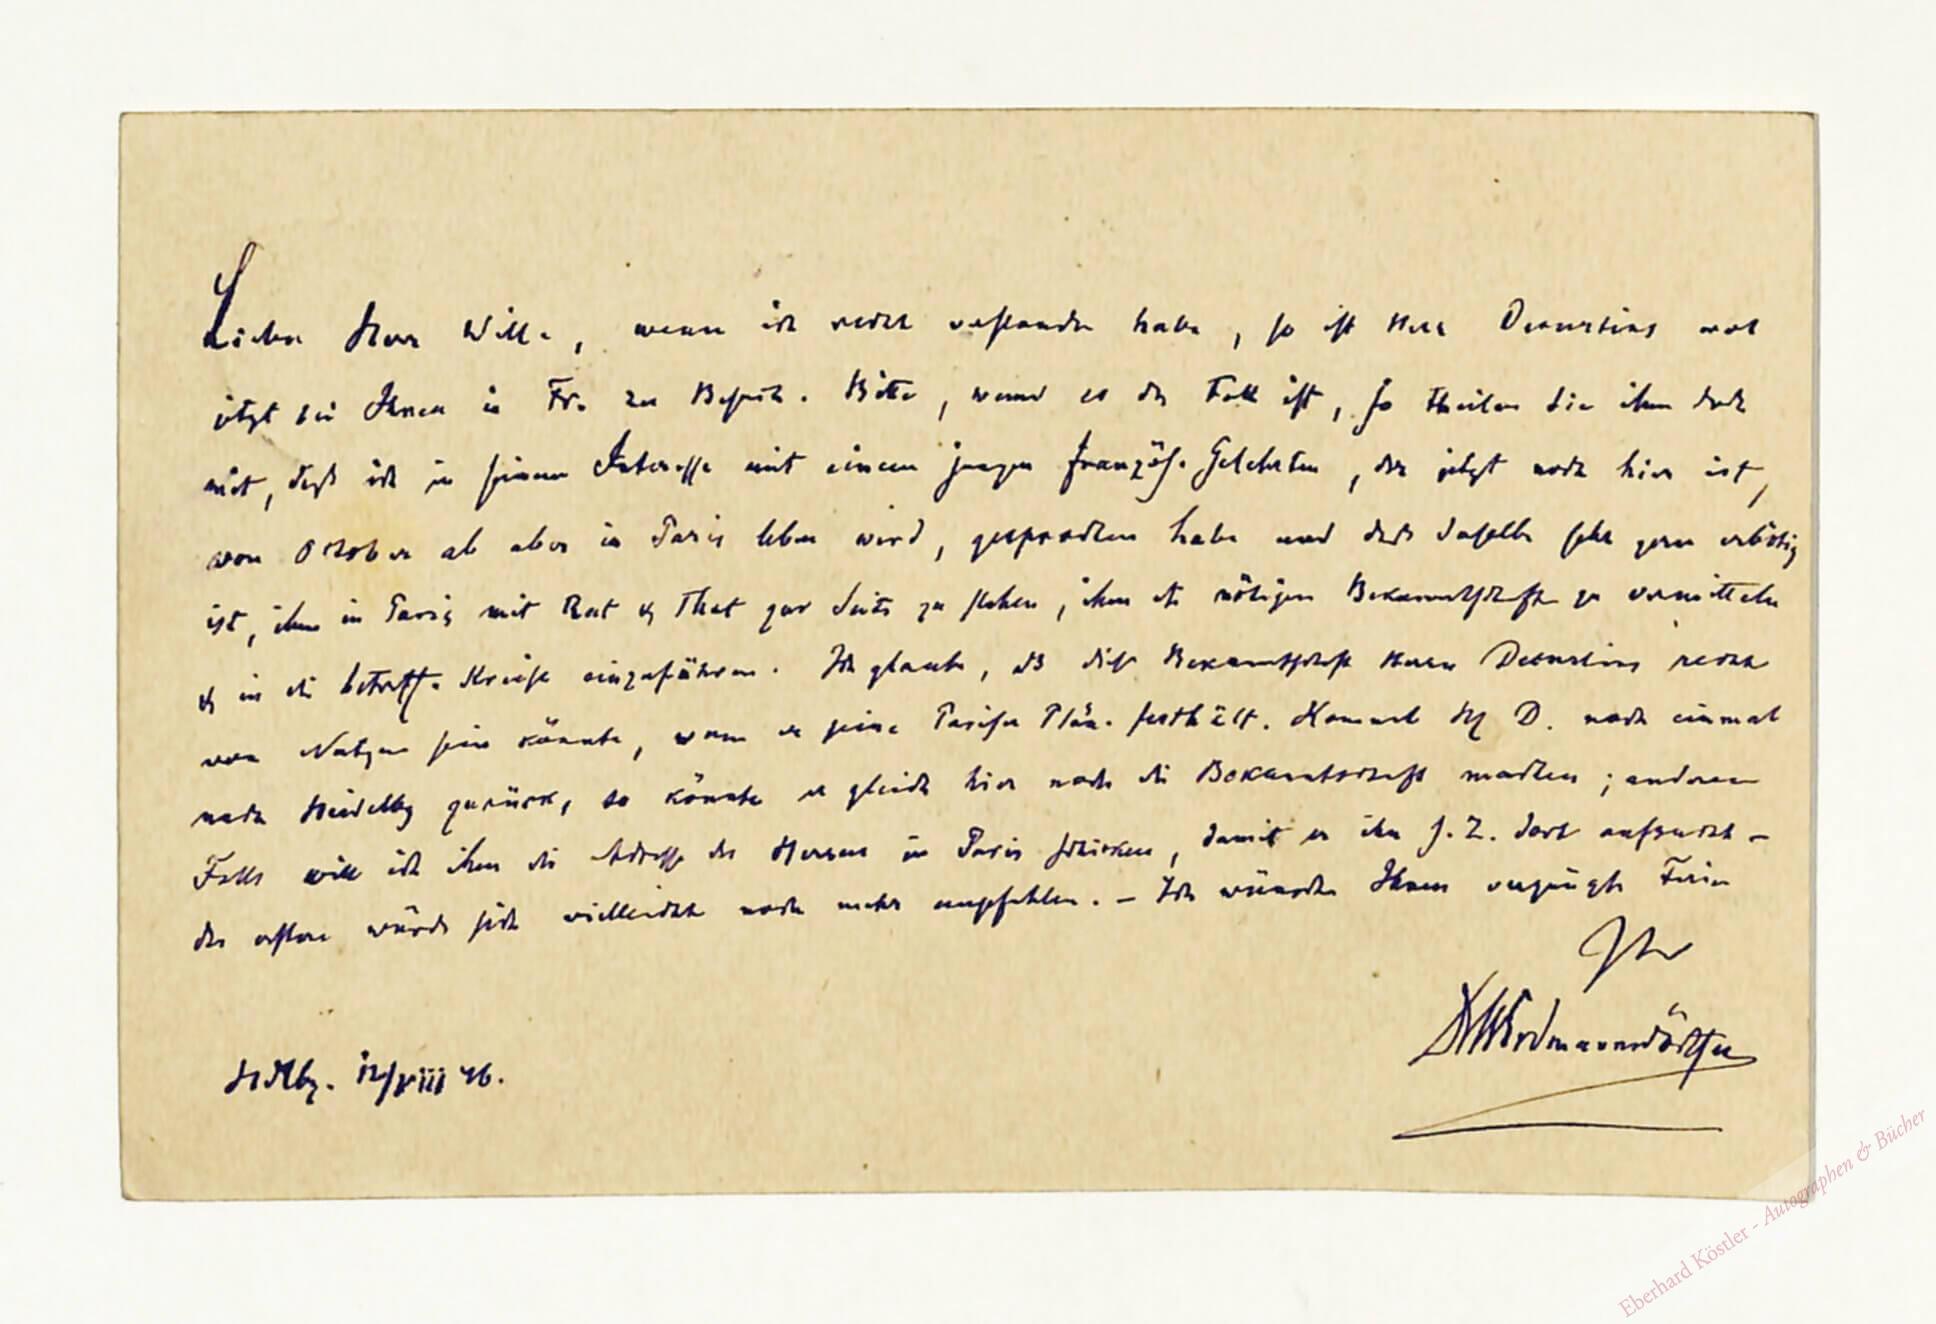 Lieber Herr Wille, wenn ich recht verstanden habe, so ist Herr Decurtins wol
jetzt bei Ihnen in Fr. zu Besuch. Bitte, wenn es der Fall ist, so theilen Sie ihm doch
mit, daß ich in seinem Interesse mit einem jungen französ. Gelehrten, der jetzt noch hier ist,
von October ab aber in Paris leben wird, gesprochen habe und daß derselbe sehr gern erbötig
ist, ihm in Paris mit Rat & That zur Seite zu stehen, ihm die nötigen Bekanntschaften zu vermitteln
& in die betreff. Kreise einzuführen. Ich glaube, daß diese Bekanntschaft Herrn Decurtins recht
von Nutzen sein könnte, wenn er seine Pariser Pläne festhält. Kommt Hr D. noch einmal
nach Heidelbg zurück, so könnte er gleich hier noch die Bekanntschaft machen; anderen
Falls will ich ihm die Adresse des Herren in Paris schicken, damit er ihn s. Z. dort aufsucht –
das erstere würde sich vielleicht noch mehr empfehlen. – Ich wünsche Ihnen vergnügte Ferien
Ihr
Erdmannsdörffer
Hdlbg. 12/VIII 76.
Eberhard Köstler - Autographen & Bücher